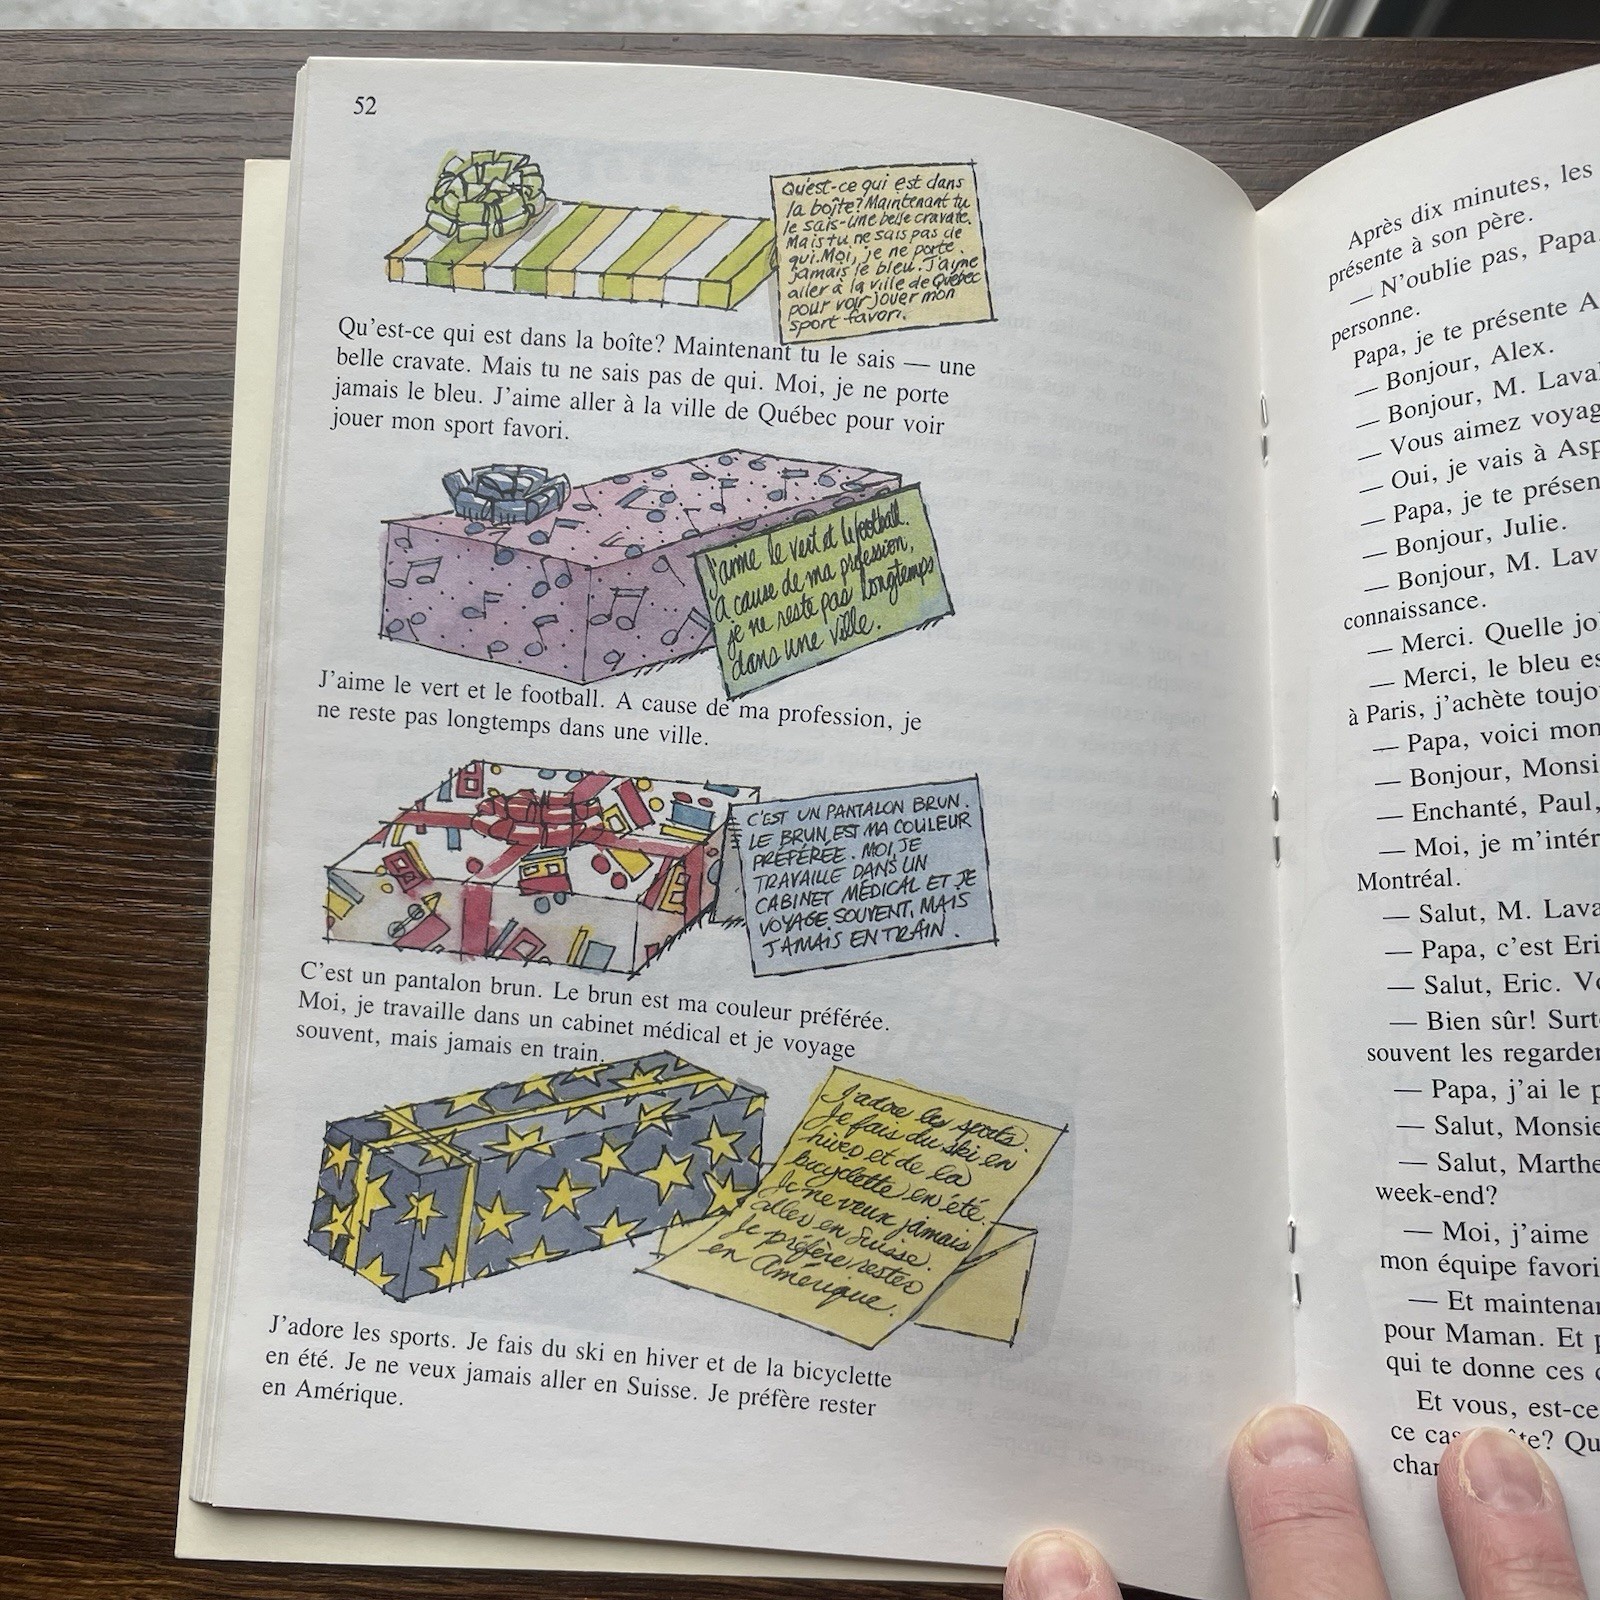 52
Qu'est-ce qui est dans
la boîte? Maintenant tu
le sais-une belle cravate.
Mais tu ne sais pas de
qui. Moi, je ne porte
jamais le bleu. J'aime
aller à la ville de Québec
pour voir jouer mon
sport favori.
Qu'est-ce qui est dans la boîte? Maintenant tu le sais — une
belle cravate. Mais tu ne sais pas de qui. Moi, je ne porte
jamais le bleu. J'aime aller à la ville de Québec pour voir
jouer mon sport favori.
J'aime le vert et le football.
A cause de ma profession,
je ne reste pas longtemps
dans une ville.
J'aime le vert et le football. A cause de ma profession, je
ne reste pas longtemps dans une ville.
C'EST UN PANTALON BRUN.
LE BRUN EST MA COULEUR
PRÉFÉRÉE. MOI, JE
TRAVAILLE DANS UN
CABINET MÉDICAL ET JE
VOYAGE SOUVENT, MAIS
JAMAIS EN TRAIN.
C'est un pantalon brun. Le brun est ma couleur préférée.
Moi, je travaille dans un cabinet médical et je voyage
souvent, mais jamais en train.
J'adore les sports.
Je fais du ski en
hiver et de la
bicyclette en été.
Je ne veux jamais
aller en Suisse.
Je préfère rester
en Amérique.
J'adore les sports. Je fais du ski en hiver et de la bicyclette
en été. Je ne veux jamais aller en Suisse. Je préfère rester
en Amérique.
Après dix minutes, les
présente à son père.
— N'oublie pas, Papa
personne.
Papa, je te présente A
— Bonjour, Alex.
— Bonjour, M. Laval
— Vous aimez voyag
— Oui, je vais à Asp
— Papa, je te présen
— Bonjour, Julie.
— Bonjour, M. Lav
connaissance.
— Merci. Quelle jo
— Merci, le bleu es
à Paris, j'achète toujo
— Papa, voici mon
— Bonjour, Monsi
— Enchanté, Paul,
— Moi, je m'intér
Montréal.
— Salut, M. Lava
— Papa, c'est Eri
— Salut, Eric. Vo
— Bien sûr! Surt
souvent les regarder
— Papa, j'ai le p
— Salut, Monsie
— Salut, Marthe
week-end?
— Moi, j'aime
mon équipe favori
— Et maintenan
pour Maman. Et p
qui te donne ces c
Et vous, est-ce
ce cas te? Qu
char